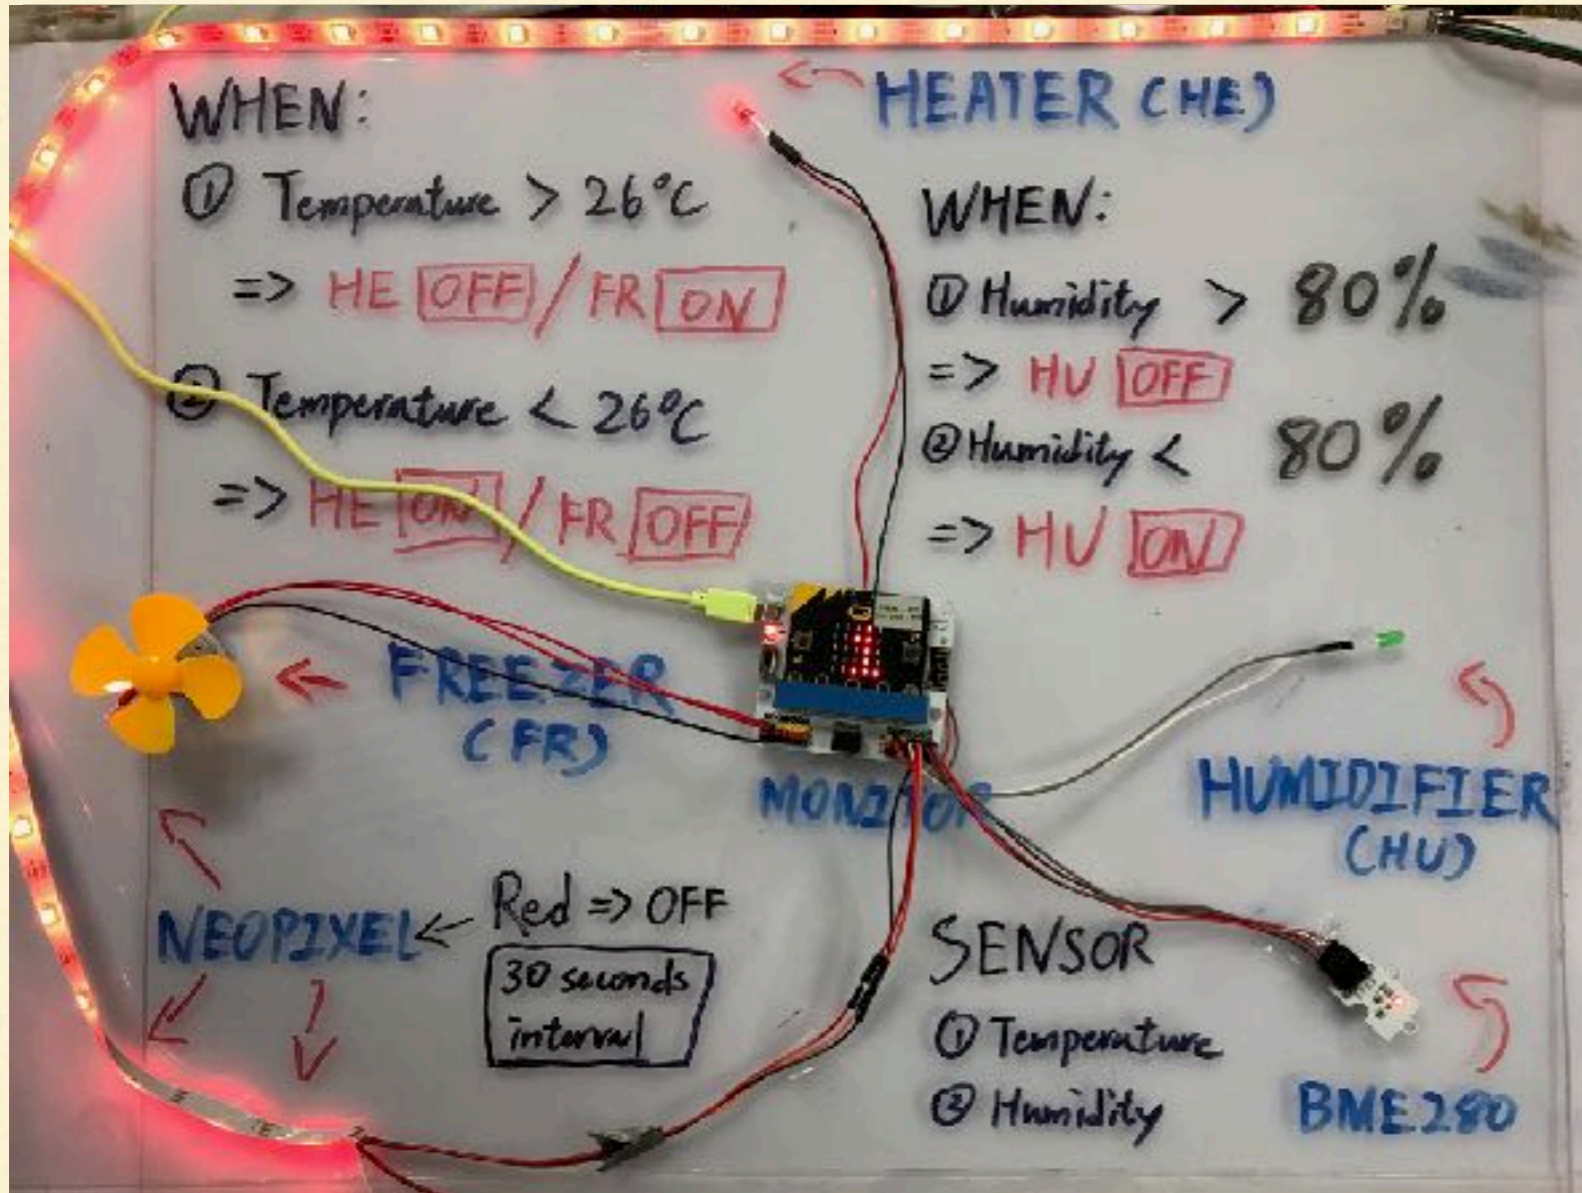 HEATER (HE)
WHEN:
① Temperature > 26°C
=> HE OFF / FR ON
② Temperature < 26°C
=> HE ON / FR OFF
WHEN:
① Humidity > 80%
=> HU OFF
② Humidity < 80%
=> HU ON
FREEZER
(FR)
MONITOR
HUMIDIFIER
(HU)
NEOPIXEL ← Red => OFF
30 seconds
interval
SENSOR
① Temperature
② Humidity
BME280